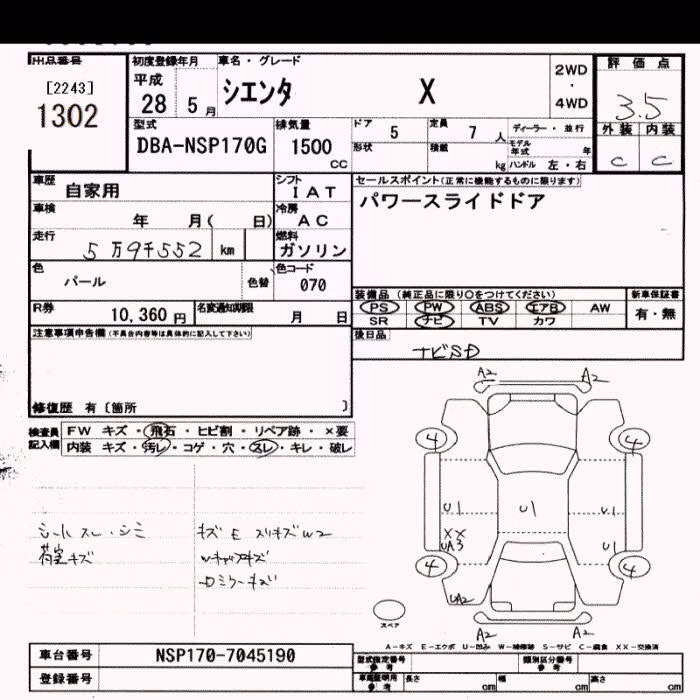 出品番号
[2243]
1302
初度登録年月
平成
28 5 月
車名・グレード
シエンタ X
2WD
・
4WD
評価点
3.5
外装 内装
C C
型式
DBA-NSP170G
排気量
1500
CC
ドア 5
定員 7 人
ディーラー・並行
形状
積載 kg
モデル年式 年
ハンドル 左・右
車歴
自家用
シフト
IAT
セールスポイント(正常に機能するものに限ります)
パワースライドドア
車検
年 月( 日)
冷房
AC
走行
5万9千552 km
燃料
ガソリン
色
パール
色替
色コード
070
R券
10,360 円
名変通知期限
月 日
装備品 (純正品に限り○をつけてください)
PS PW ABS エアB AW
SR ナビ TV カワ
新車保証書
有・無
後日品
ナビSD
注意事項申告欄(不具合内容等は具体的に記入して下さい)
修復歴 有〔箇所 〕
検査員
記入欄
FW キズ・飛石・ヒビ割・リペア跡・×要
内装 キズ・汚レ・コゲ・穴・スレ・キレ・破レ
シートスレ・シミ
荷室キズ
キズE スリキズW2
A2 A2
4 4
U1 U1 U1
XX
UA3 U1
4 4
UA2
A2 A2
スペア
A-キズ E-エクボ U-凹み W-補修跡 S-サビ C-腐食 XX-交換済
車台番号
NSP170-7045190
登録番号
型式指定番号
参考
類別区分番号
参考
車庫証明用
参考
長さ cm
幅 cm
高さ cm